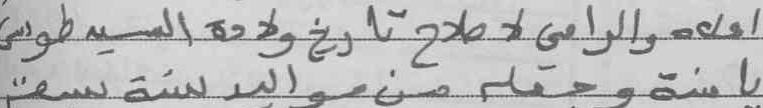 اعلاه والرامي لاصلاح تاريخ ولادة السيد طوسى
يامنة وجعله من مواليد سنة